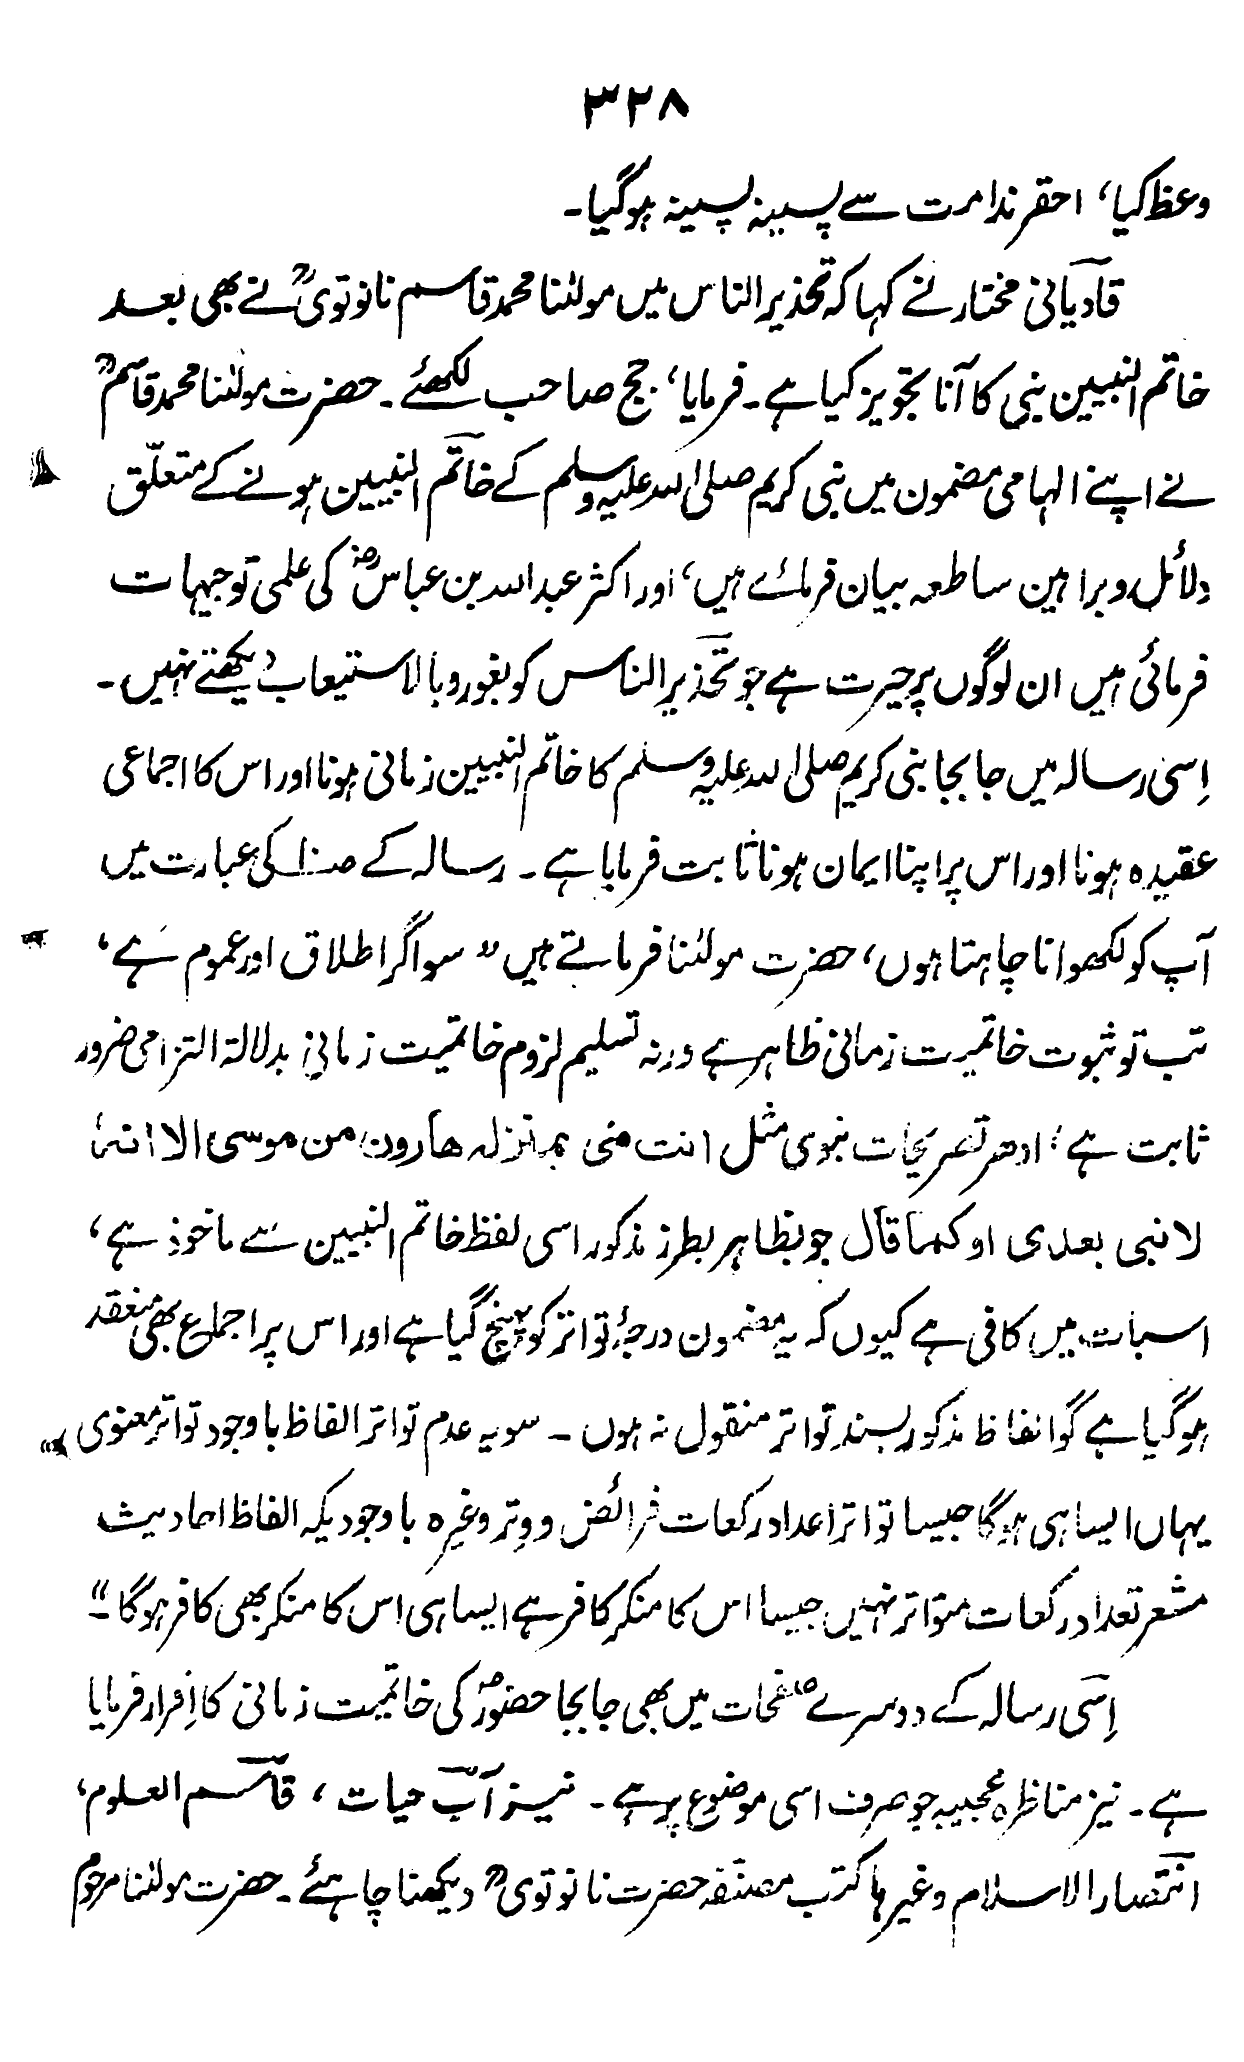 ۳۲۸
وعظ کیا، احقر ندامت سے پسینہ پسینہ ہوگیا۔
قادیانی مختار نے کہا کہ تحذیر الناس میں مولٰنا محمد قاسم نانوتویؒ نے بھی بعد
خاتم النبیین نبی کا آنا تجویز کیا ہے۔ فرمایا، جج صاحب لکھئے۔ حضرت مولٰنا محمد قاسمؒ
نے اپنے الہامی مضمون میں نبی کریم صلی اللہ علیہ وسلم کے خاتم النبیین ہونے کے متعلّق
دلائل و براہین ساطعہ بیان فرمائے ہیں، اور اکثر عبداللہ بن عباسؓ کی علمی توجیہات
فرمائی ہیں ان لوگوں پر حیرت ہے جو تحذیر الناس کو بغور و بالاستیعاب دیکھتے نہیں۔
اِسی رسالہ میں جابجا نبی کریم صلی اللہ علیہ وسلم کا خاتم النبیین زمانی ہونا اور اس کا اجماعی
عقیدہ ہونا اور اس پر اپنا ایمان ہونا ثابت فرمایا ہے۔ رسالہ کے کی عبارت میں
آپ کو لکھوانا چاہتا ہوں، حضرت مولٰنا فرماتے ہیں ”سو اگر اطلاق اور عموم ہے،
تب تو ثبوت خاتمیت زمانی ظاہر ہے ورنہ تسلیم لزوم خاتمیت زمانی بدلالۃ التزامی ضرور
ثابت ہے، ادھر تصریحات نبوی مثل انت منی بمنزلہ ھارون من موسی الا انہٗ
لا نبی بعدی او کما قال جو بظاہر بطرز مذکور اسی لفظ خاتم النبیین سے ماخوذ ہے،
اسبات میں کافی ہے کیوں کہ یہ مضمون درجۂ تواتر کو پہنچ گیا ہے اور اس پر اجماع بھی منعقد
ہوگیا ہے گو الفاظ مذکور بسند تواتر منقول نہ ہوں۔ سو یہ عدم تواتر الفاظ باوجود تواتر معنوی
یہاں ایسا ہی ہوگا جیسا تواتر اعداد رکعات فرائض و وتر وغیرہ باوجودیکہ الفاظ احادیث
مشعر تعداد رکعات متواتر نہیں جیسا اس کا منکر کافر ہے ایسا ہی اس کا منکر بھی کافر ہوگا۔“
اِسی رسالہ کے دوسرے صفحات میں بھی جابجا حضورؐ کی خاتمیت زمانی کا اِقرار فرمایا
ہے۔ نیز مناظرہ عجیبہ جو صرف اسی موضوع پر ہے۔ نیز آب حیات، قاسم العلوم،
انتصار الاسلام وغیرہا کتب مصنّفہ حضرت نانوتویؒ دیکھنا چاہئے۔ حضرت مولٰنا مرحوم